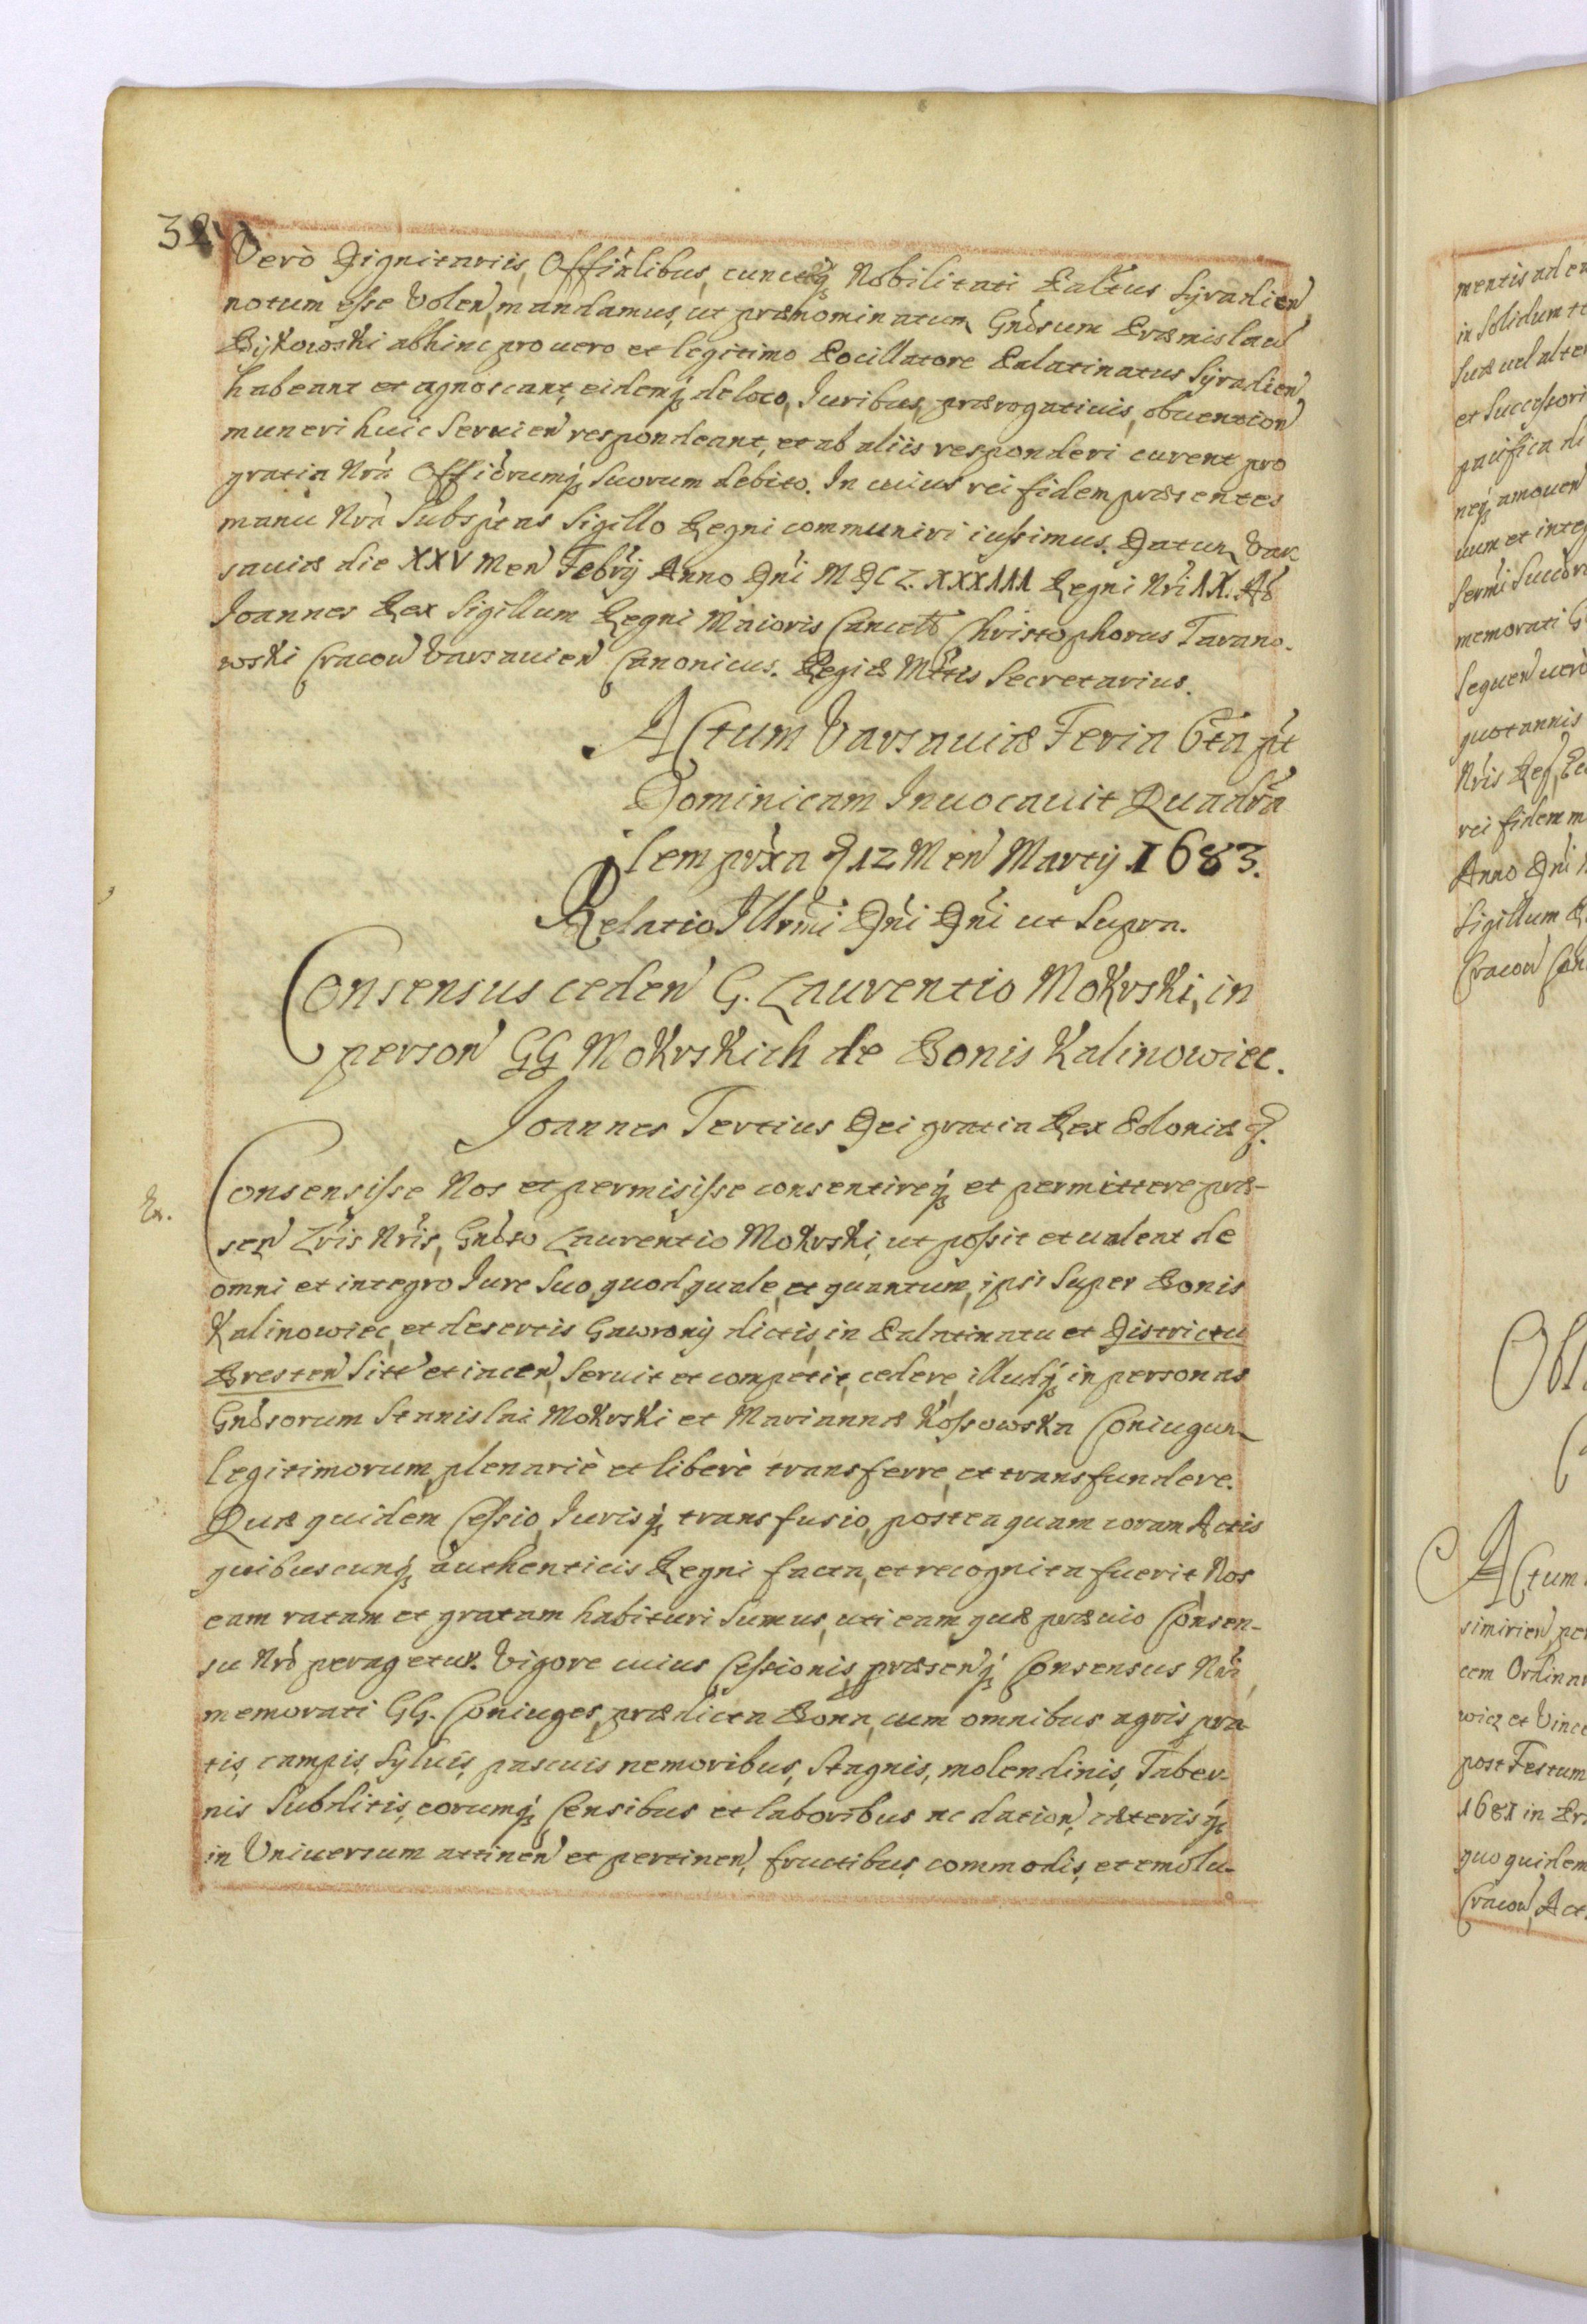 32
Verò Dignitariis, Offilibus, cunctęq; Nobilitati Paltus Syradien,
notum esse Volen, mandamus, ut prænominatum Gnosum Præmislau
Bijkowski abhinc pro uero et legitimo Pocillatore Palatinatus Syradien,
habeant et agnoscant, eidemq; de loco, Iuribus, prærogatiuis, obuention
muneri huic Seruien respondeant, et ab aliis responderi curent pro
gratia Nra Officrumq; Suorum debito. In cuius rei fidem præsentes
manu Nra Subsptas Sigillo Regni communiri iussimus. Datum Var-
sauiæ die XXV Men Febrij Anno Dni MDCLXXXIII Regni Nri IX.
Joannes Rex Sigillum Regni Maioris Cancell Christophorus Tarano-
wski Cracou Varsauien Canonicus. Regiæ Mttis Secretarius.
Actum Varsauiæ Feria 6ta pt
Dominicam Inuocauit Quadra
lem prxa d 12 Men Martij 1683.
Relatio Illrmi Dni Dni ut Supra.
Consensus ceden G. Laurentio Mokrski, in
person GG Mokrskich de Bonis Kalinowiec.
Joannes Tertius Dei gratia Rex Poloniæ &.
Consensisse Nos et permisisse consentireq; et permittere præ-
sen Lris Nris, Gnoso Laurentio Mokrski, ut possit et ualeat de
omni et integro Iure Suo, quod, quale, et quantum, ipsi Super Bonis
Kalinowiec, et desertis Gawronij dictis, in Palatinatu et Districtu
Bresten Sitt et iacen, Seruit et competit, cedere, illudq; in personas
Gnosorum Stanislai Mokrski et Mariannæ Kossowska Coniugum
legitimorum plenariè et liberè transferre, et transfundere.
Quæ quidem Cessio, Iurisq; transfusio, postea quam coram Actis
quibuscunq; authenticis Regni facta, et recognita fuerit, Nos
eam ratam et gratam habituri Sumus, uti eam quæ præuio Consen-
su Nro peragetur. Vigore cuius Cessionis, præsenq; Consensus Nri
memorati GG. Coniuges, prædicta Bona, cum omnibus agris, pra-
tis, campis, Syluis, pascuis nemoribus, Stagnis, molendinis, Taber-
nis Subditis, eorumq; Censibus et laboribus ac dation, cæterisq;
in Uniuersum attinen et pertinen, fructibus, commodis, et emolu-